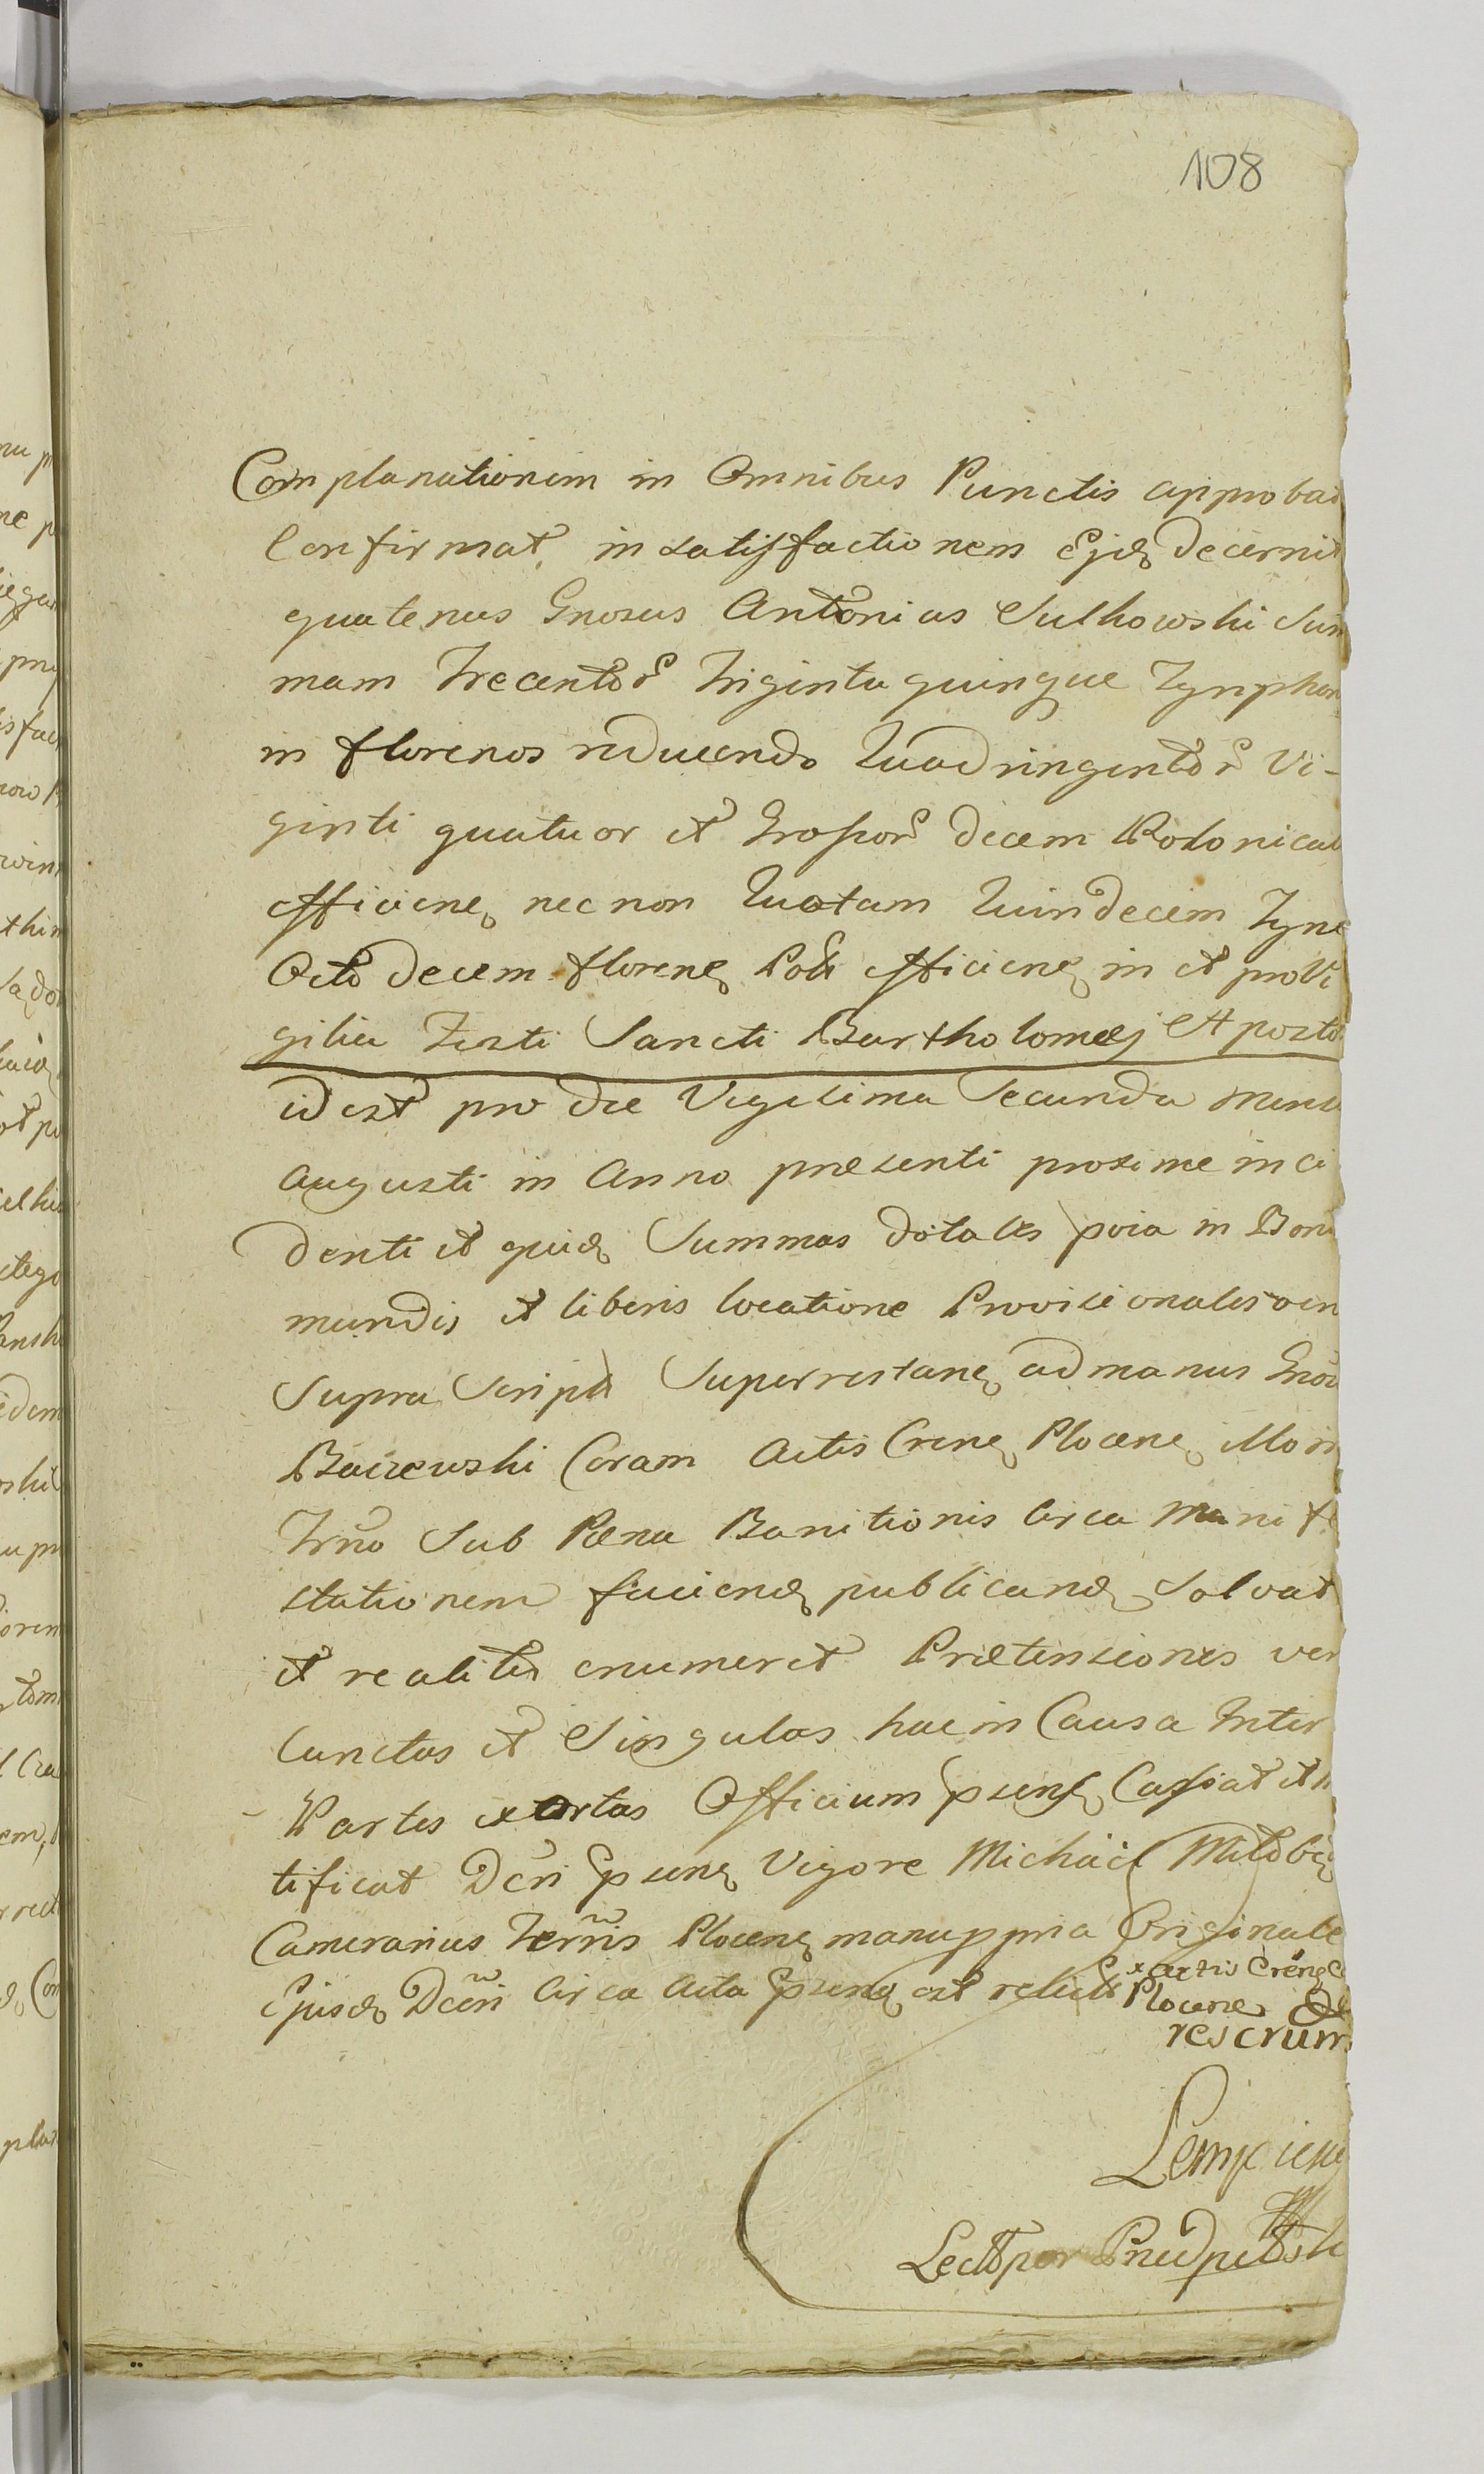 108
Complanationem in Omnibus Punctis approbat
Confirmat, in satisfactionem Ejdē decernit
quatenus Gnosus Antonius Sulkowski Sum
mam Trecentor Triginta quinque Tynphon
in florenos reducendo Quadringentor Vi-
ginti quatuor et Grossor decem Polonical
efficiene nec non Quotam Quindecim Tyne
Octo decem florene Poli efficiene in et pro Vi
gilia Festi Sancti Bartholomæj Aposto
id est pro die Vigesima Secunda mens
Augusti in Anno præsenti proxime inci
denti et quide Summas dotales in Boni
mundis et liberis locatione Provisionales
Supra Script Superrestane ad manus Gnosi
Baiiewski Coram Actis Crene Plocene
Trno Sub Pæna Banitionis Circa Manife
stationem faciend publicand Solvat
et realiter enumeret Prætensiones ver
Cunctas et Singulas hac in Causa Inter
Partes exortas Officium psens Cassat et
tificat Dcri psene Vigore Michäel
Camerarius Terris Plocene manuppria Originale
Ejusdē Dcri Circa Acta psene est relict
Ex actis Crene
Plocene
rescrum
Lempicki
Lect per